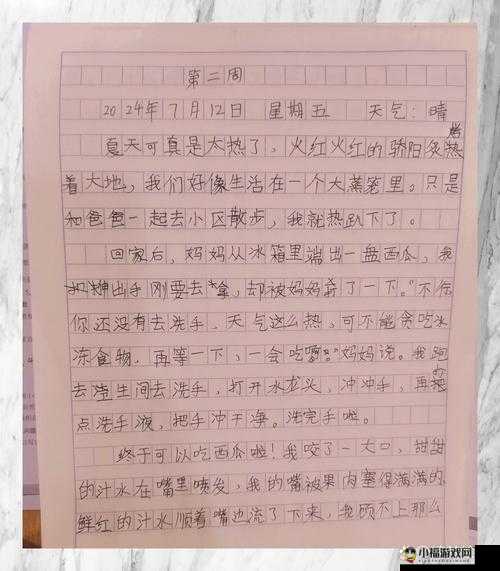 第二周
2024年7月12日 星期五 天气:晴
夏天可真是太热了,火红火红的骄阳炙热
着大地,我们好像生活在一个大蒸笼里。只是
和爸爸一起去小区散步,我就热趴下了。
回家后,妈妈从冰箱里端出一盘西瓜,我
伸出手刚要去拿,却被妈妈了一下。"不行
你还没有去洗手,天气这么热,可不能贪吃冰
冻食物,再等一下,一会吃!"妈妈说。我跑
去卫生间去洗手,打开水龙头,冲冲手,再
点洗手液,把手冲干净。洗完手啦。
终于可以吃西瓜啦!我咬了一大口,甜甜
的汁水在嘴里喷发,我的嘴被果肉塞得满满的
鲜红的汁水顺着嘴边流了下来,我顾不上那么
小福游戏网